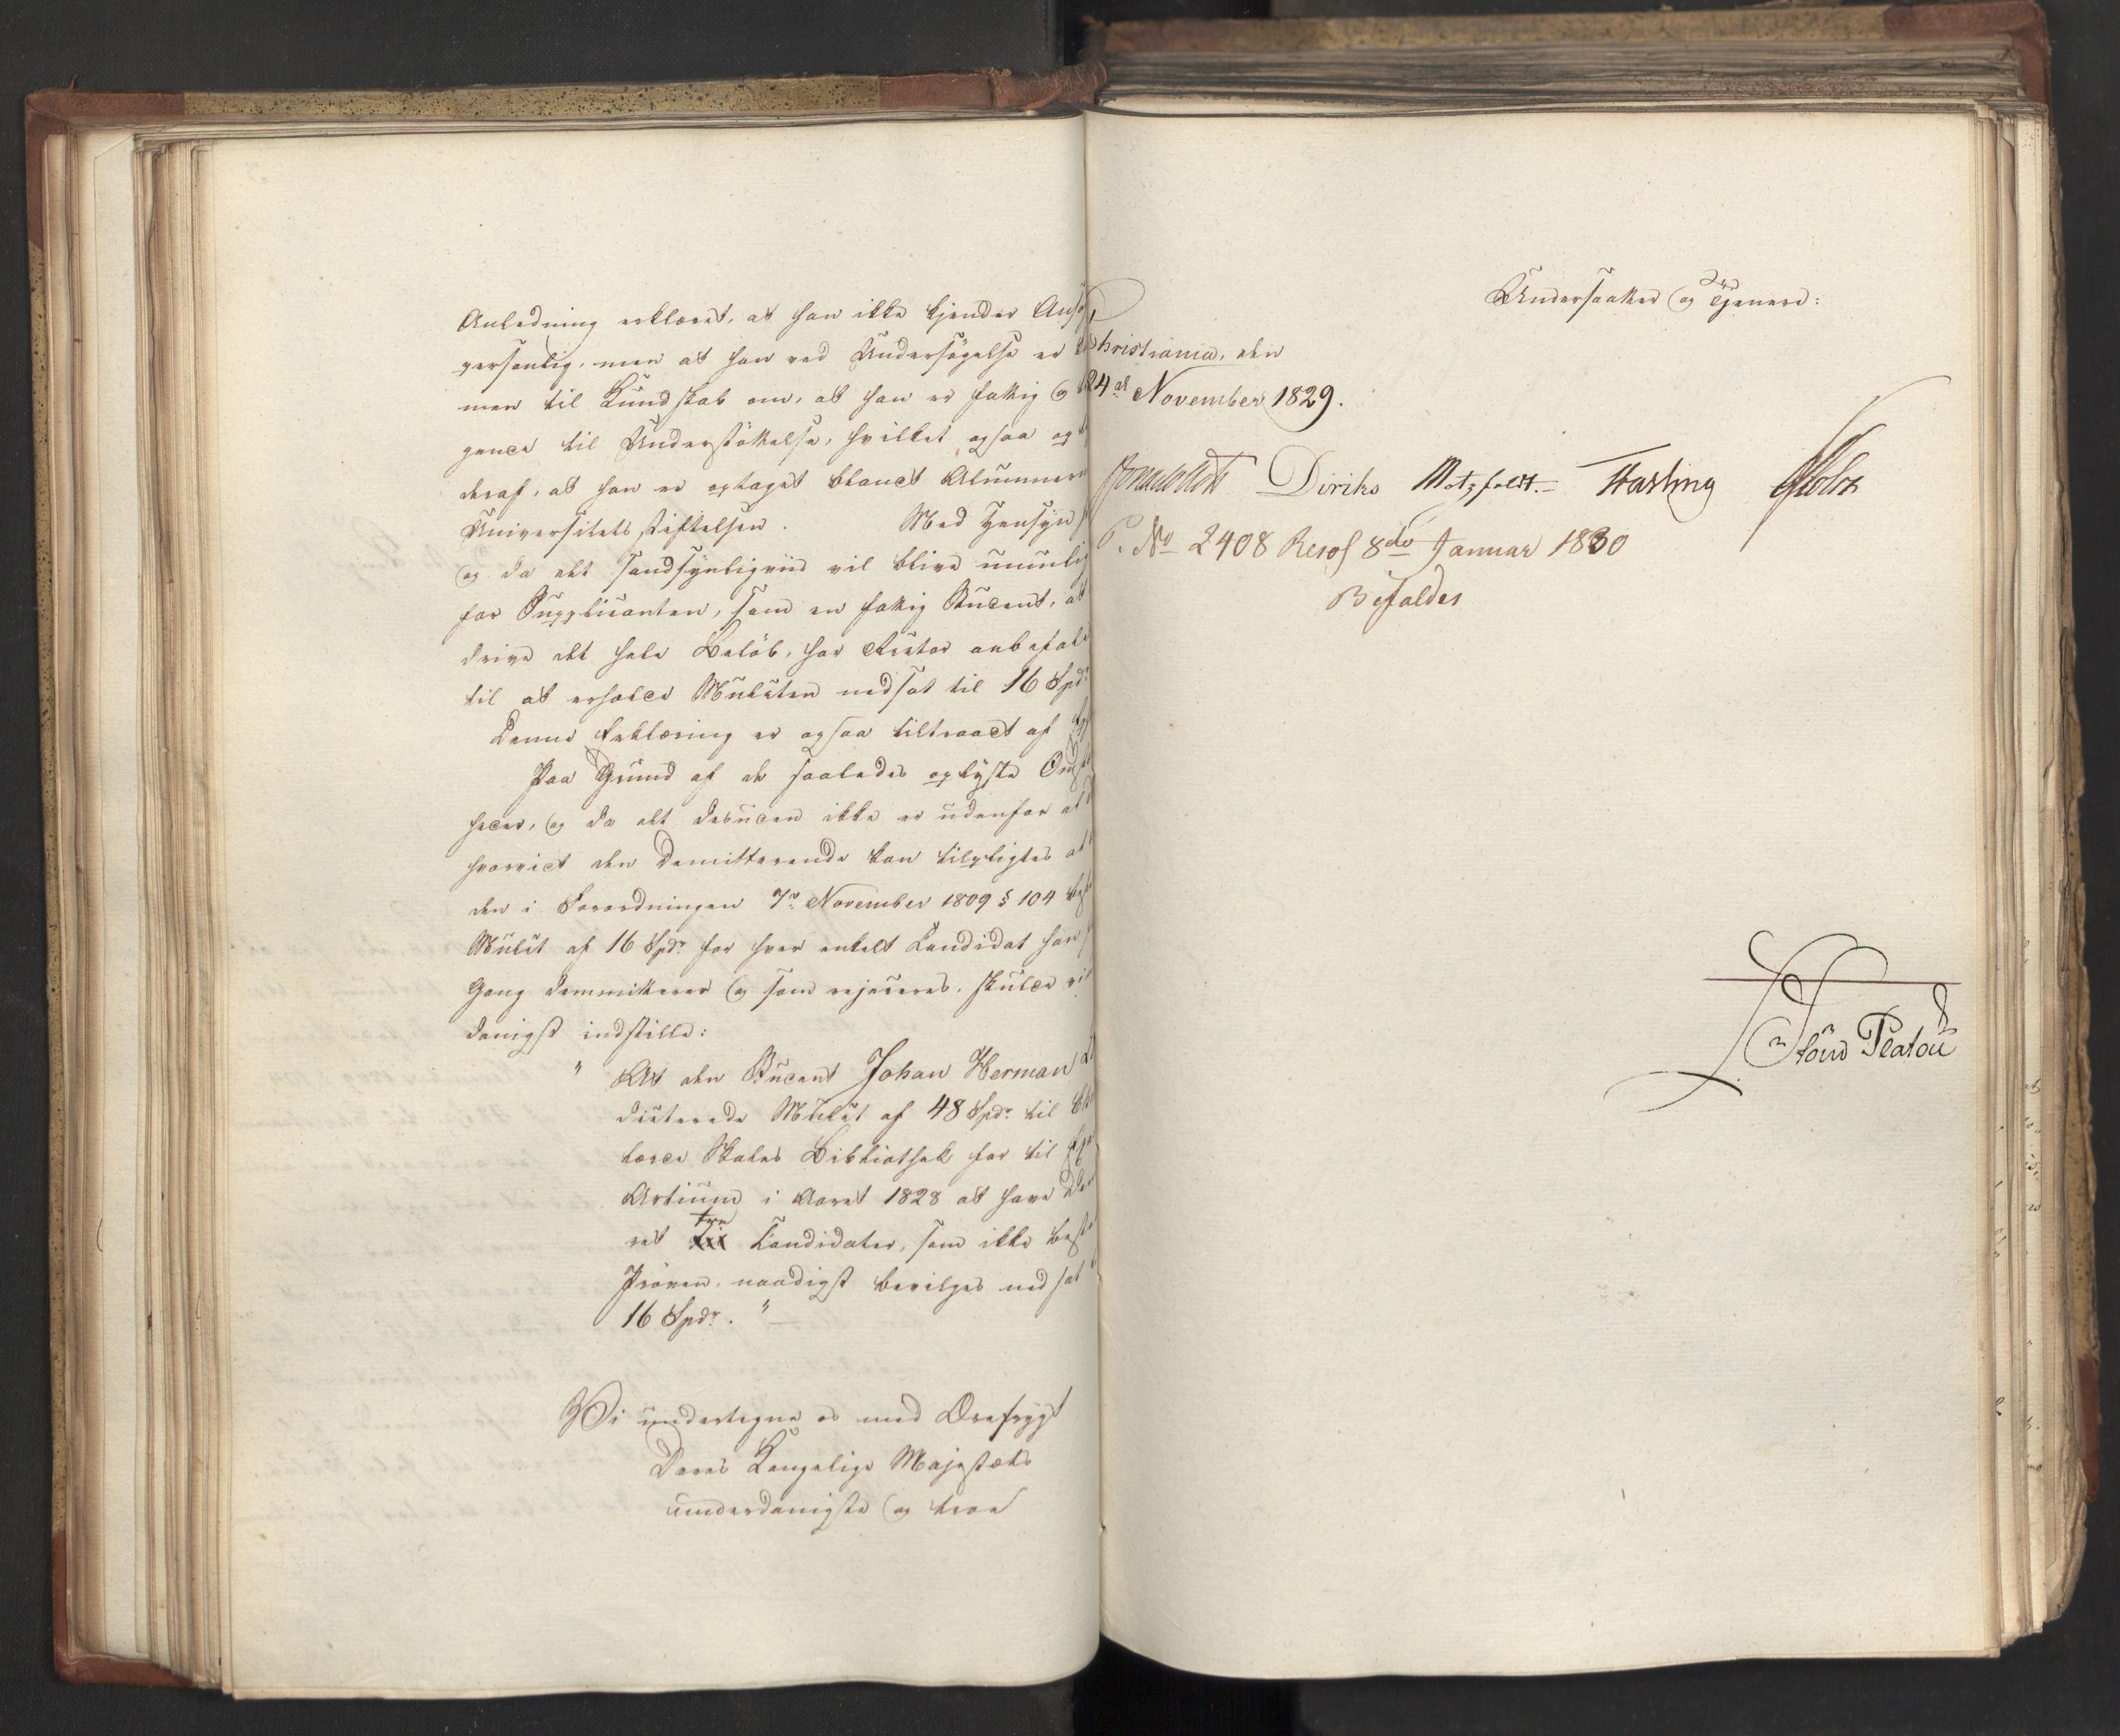 Anledning erklæret, at han ikke kjender Ans
personlig, men at han ved Undersøgelse er
men til Kundskab om, at han er fattig og
gende til Understøttelse, hvilket ogsaa
deraf, at han er optaget blandt Alumnerne
Universitets Stiftelsen. Med Hensyn
og da det sandsynligviis vil blive umulig
for Supplicanten, som en fattig Student, at
drive det hele Beløb, har Rector anbefalet
til at erholde Mulcten nedsat til 16 Spdr
Denne Erklæring er ogsaa tiltraadt af
Paa Grund af de saaledes oplyste Om
heder, og da det desuden ikke er udenfor al
hvorvidt den Demitterende kan tilpligtes at
den i Forordningen 7de November 1809 § 104
Mulct af 16 Spdr for hver enkelt Candidat han
Gang demmitterer og som rejiceres, skulde vi
danigst indstille:
" At den Student Johan Herman
dicterede Mulct af 48 Spdr til
lærde Skoles Bibliothek for til
Artium i Aaret 1828 at have
ret tre Candidater, som ikke
Prøven, naadigst bevilges nedsat
16 Spdr. "
Vi undertegne os med Ærefrygt
Deres Kongelige Majestæts
underdanigste og troe
Undersaatter og Tjenere:
Christiania, den
24de November 1829.
Diriks Motzfeldt. Fasting Holst
P. No 2408 Resol 8de Januar 1830
Bifaldes
Stoud Platou